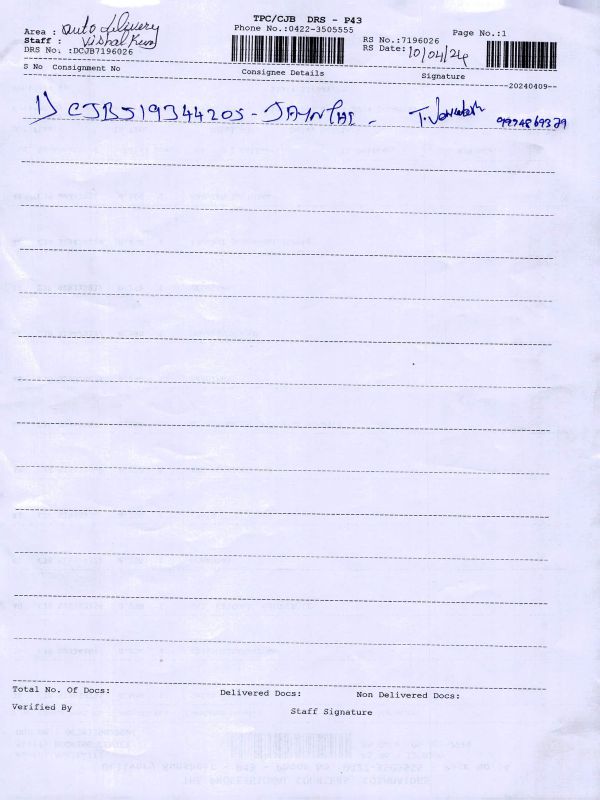 TPC/CJB DRS - P43
Area : Auto delivery Phone No.:0422-3505555 Page No.:1
Staff : Vishal RS No.:7196026
DRS No. :DCJB7196026 RS Date: 10/04/24
S No Consignment No Consignee Details Signature
--20240409--
1) CJB519344205 - JAYNTHI - T. Venkatesh
Total No. Of Docs: Delivered Docs: Non Delivered Docs:
Verified By Staff Signature